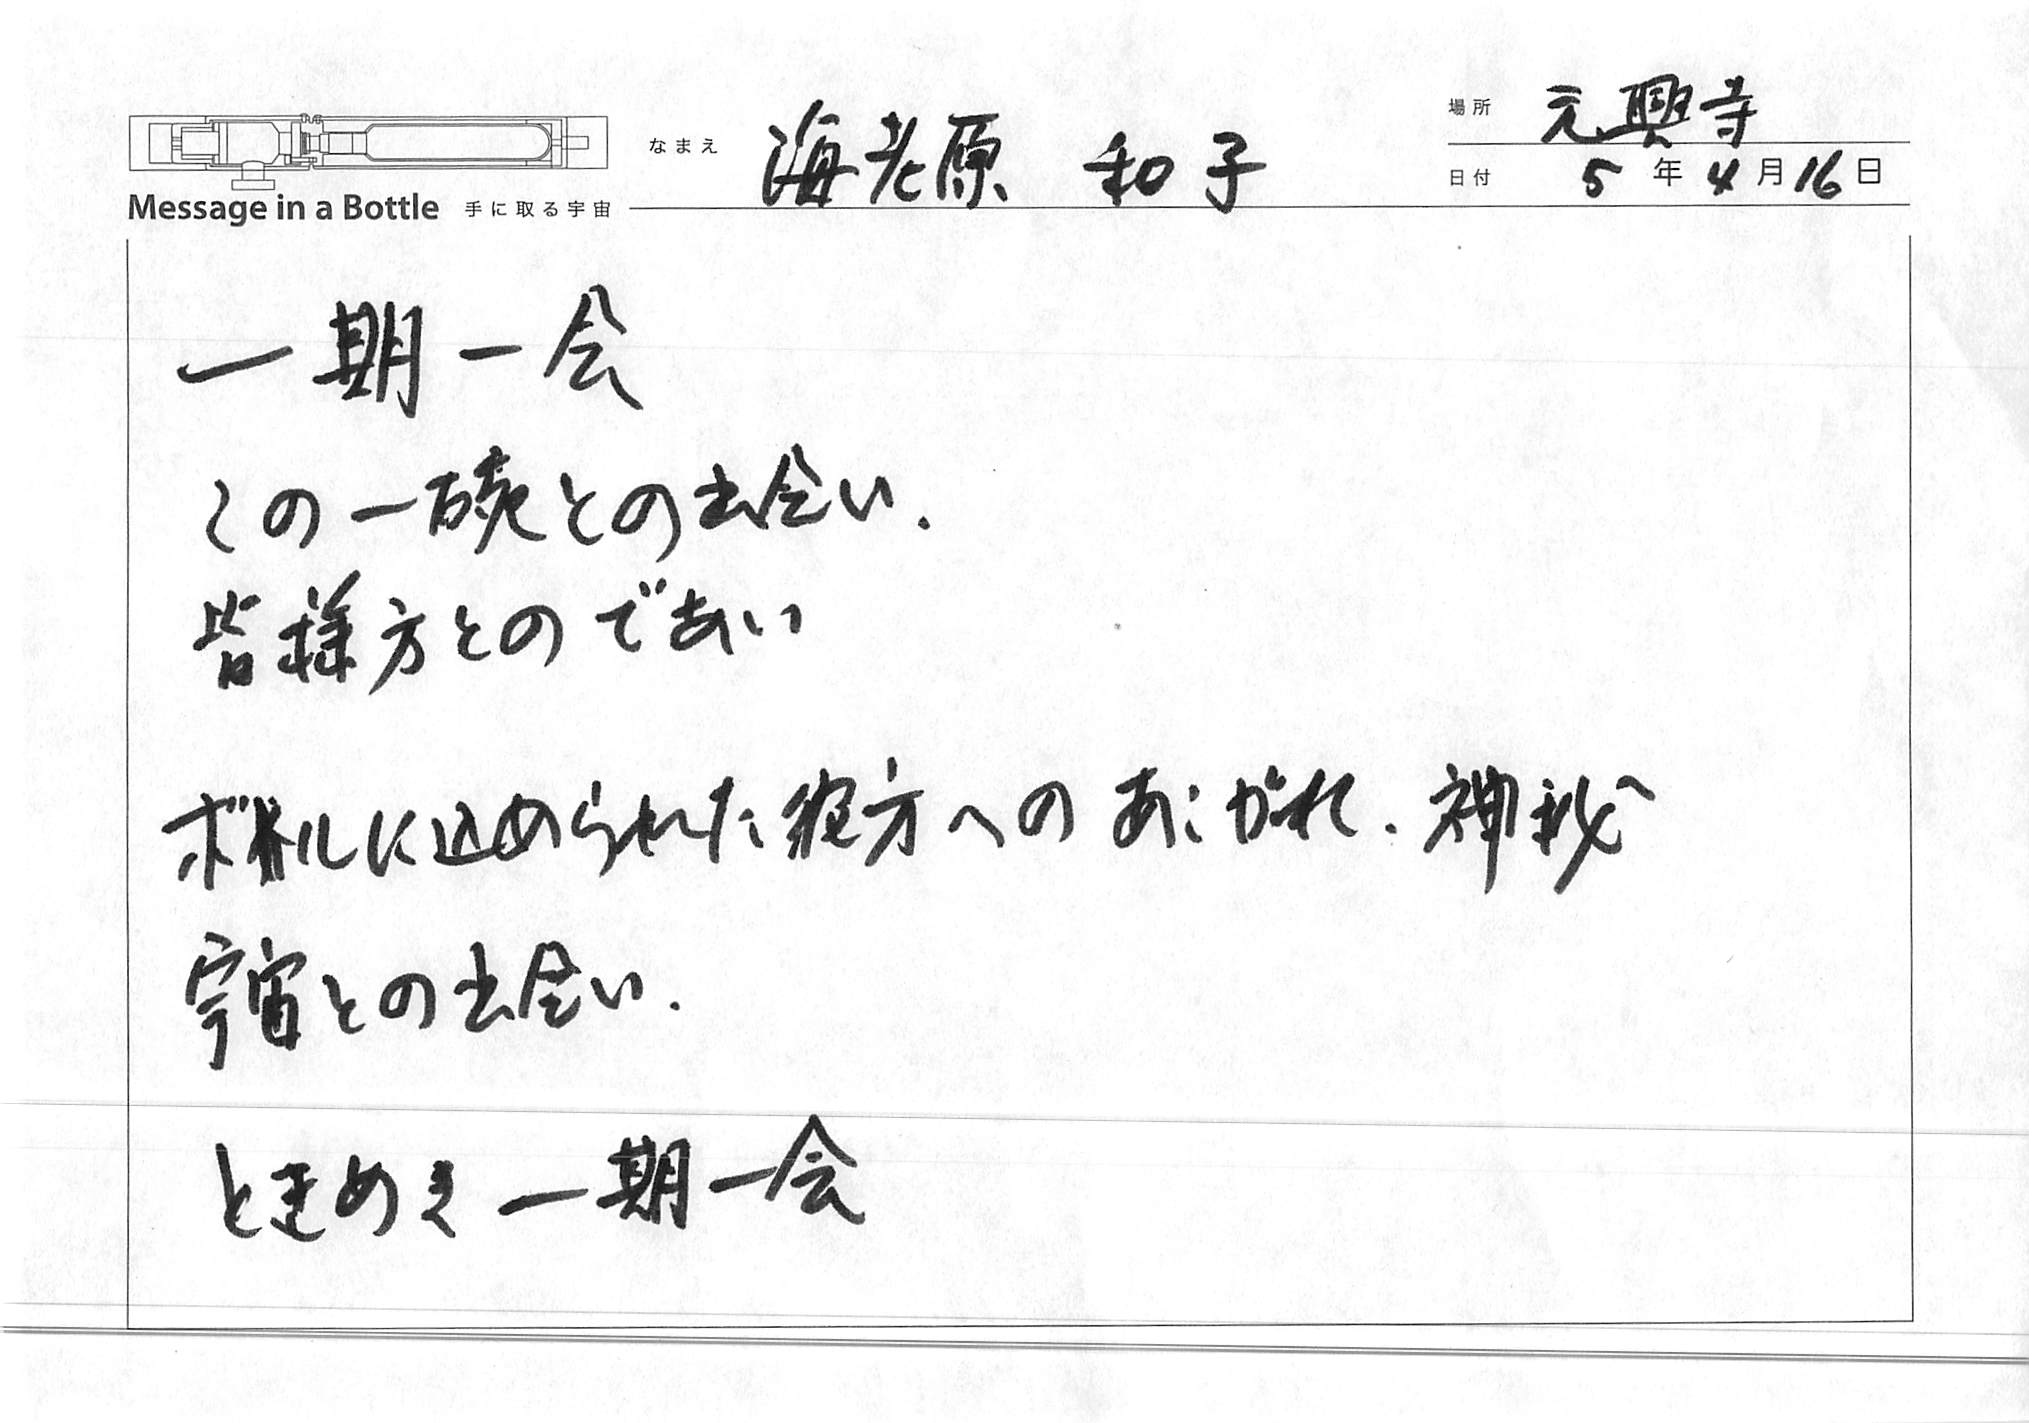 場所 元興寺
なまえ 海老原 和子
日付 5年4月16日
Message in a Bottle 手に取る宇宙
一期一会
この一碗との出会い.
皆様方とのであい
ボトルに込められた彼方へのあこがれ.神秘
宇宙との出会い.
ときめき一期一会